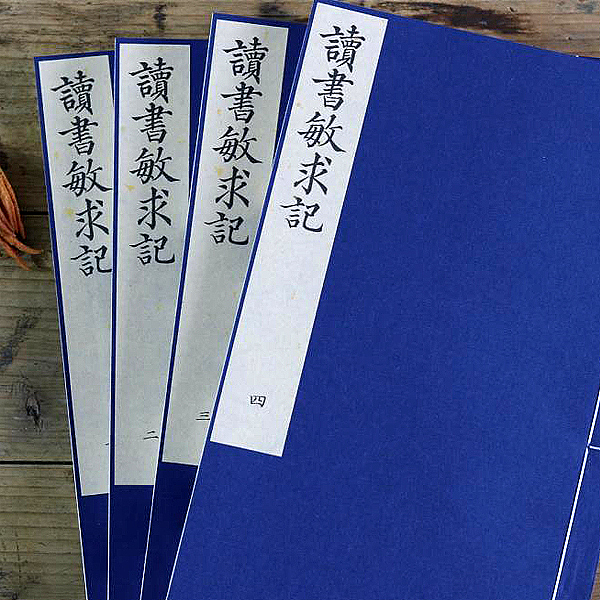 讀書敏求記
讀書敏求記
二
讀書敏求記
三
讀書敏求記
四